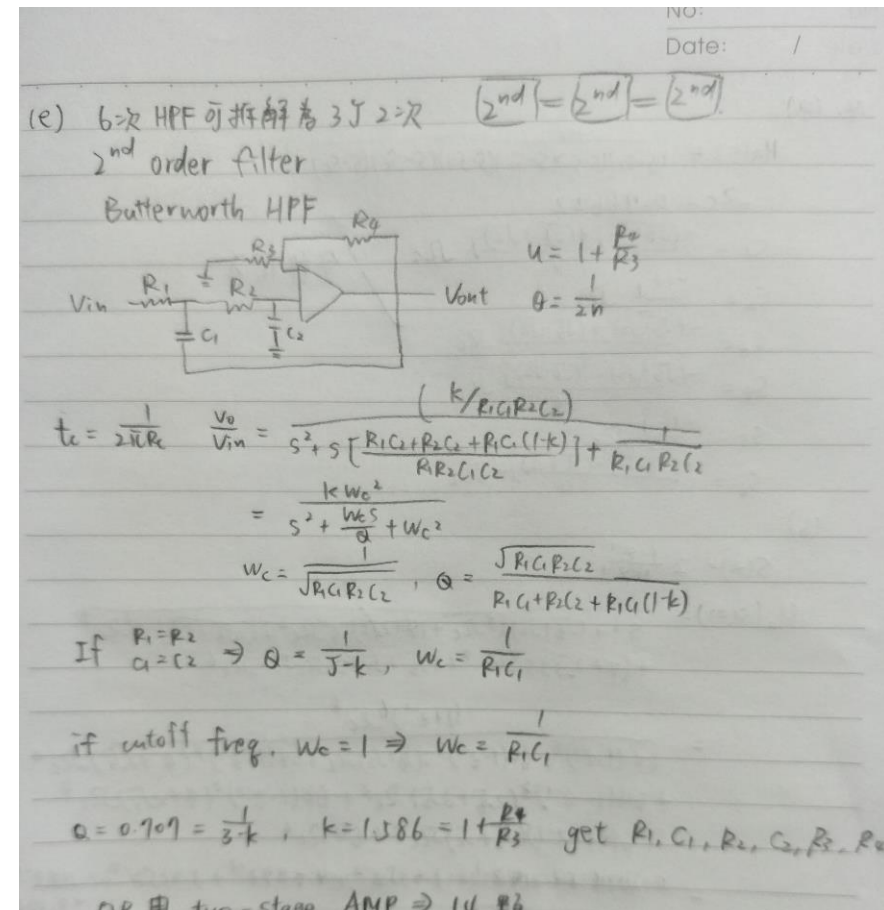 No:
Date: /
(e) 6次 HPF 可拆解為 3个 2次 [2nd]=[2nd]=[2nd]
2nd order filter
Butterworth HPF
R4
R3
u = 1 + R4/R3
Vin R1 R2 Vout Q = 1/2n
C1 C2
tc = 1/2πRc Vo/Vin = (k/R1C1R2C2) / S² + S[R1C2+R2C2+R1C1(1-k)/R1R2C1C2] + 1/R1C1R2C2
= kWc² / S² + WcS/Q + Wc²
Wc = 1/√R1C1R2C2 , Q = √R1C1R2C2 / R1C1+R2C2+R1C1(1-k)
If R1=R2 C1=C2 ⇒ Q = 1/3-k , Wc = 1/R1C1
if cutoff freq. Wc = 1 ⇒ Wc = 1/R1C1
Q = 0.707 = 1/3-k , k = 1.586 = 1 + R4/R3 get R1, C1, R2, C2, R3, R4
two-stage AMP ⇒